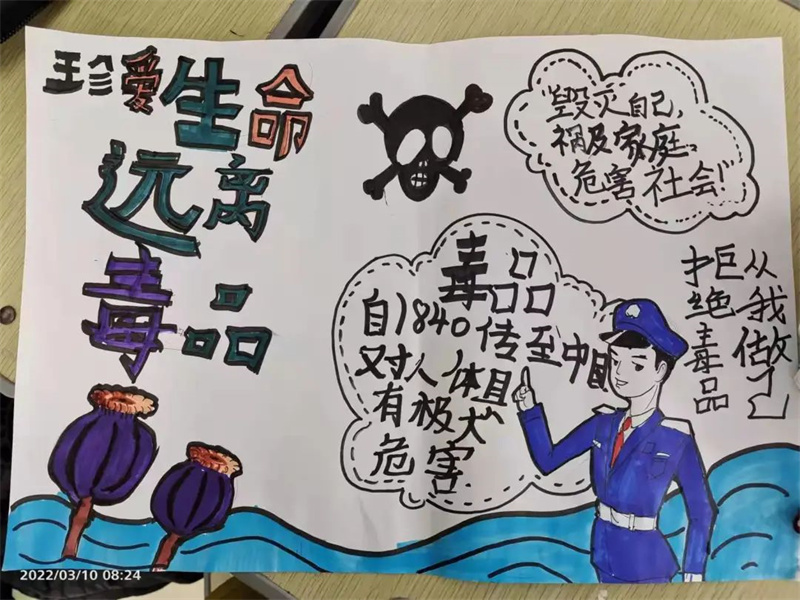 珍爱生命
远离
毒品
毁灭自己,
祸及家庭,
危害社会!
毒品
自1840传至中国
对人体具
有极大
危害
从我做起
拒绝毒品
2022/03/10 08:24